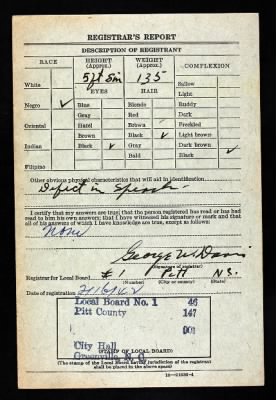 REGISTRAR'S REPORT
DESCRIPTION OF REGISTRANT
RACE HEIGHT (Approx.) WEIGHT (Approx.) COMPLEXION
5 ft 5 in 135
White Sallow
EYES HAIR Light
Negro ✓ Blue Blonde Ruddy
Gray Red Dark
Oriental Hazel Brown Freckled
Brown Black ✓ Light brown
Indian Black ✓ Gray Dark brown ✓
Bald Black
Filipino
Other obvious physical characteristics that will aid in identification
Defect in Speech
I certify that my answers are true; that the person registered has read or has had
read to him his own answers; that I have witnessed his signature or mark and that
all of his answers of which I have knowledge are true, except as follows:
None
George W. Davis
(Signature of registrar)
Registrar for Local Board # 1 Pitt N.C.
(Number) (City or county) (State)
Date of registration
Local Board No. 1 46
Pitt County 147
001
City Hall
Greenville, N.C.
(STAMP OF LOCAL BOARD)
(The stamp of the Local Board having jurisdiction of the registrant
shall be placed in the above space)